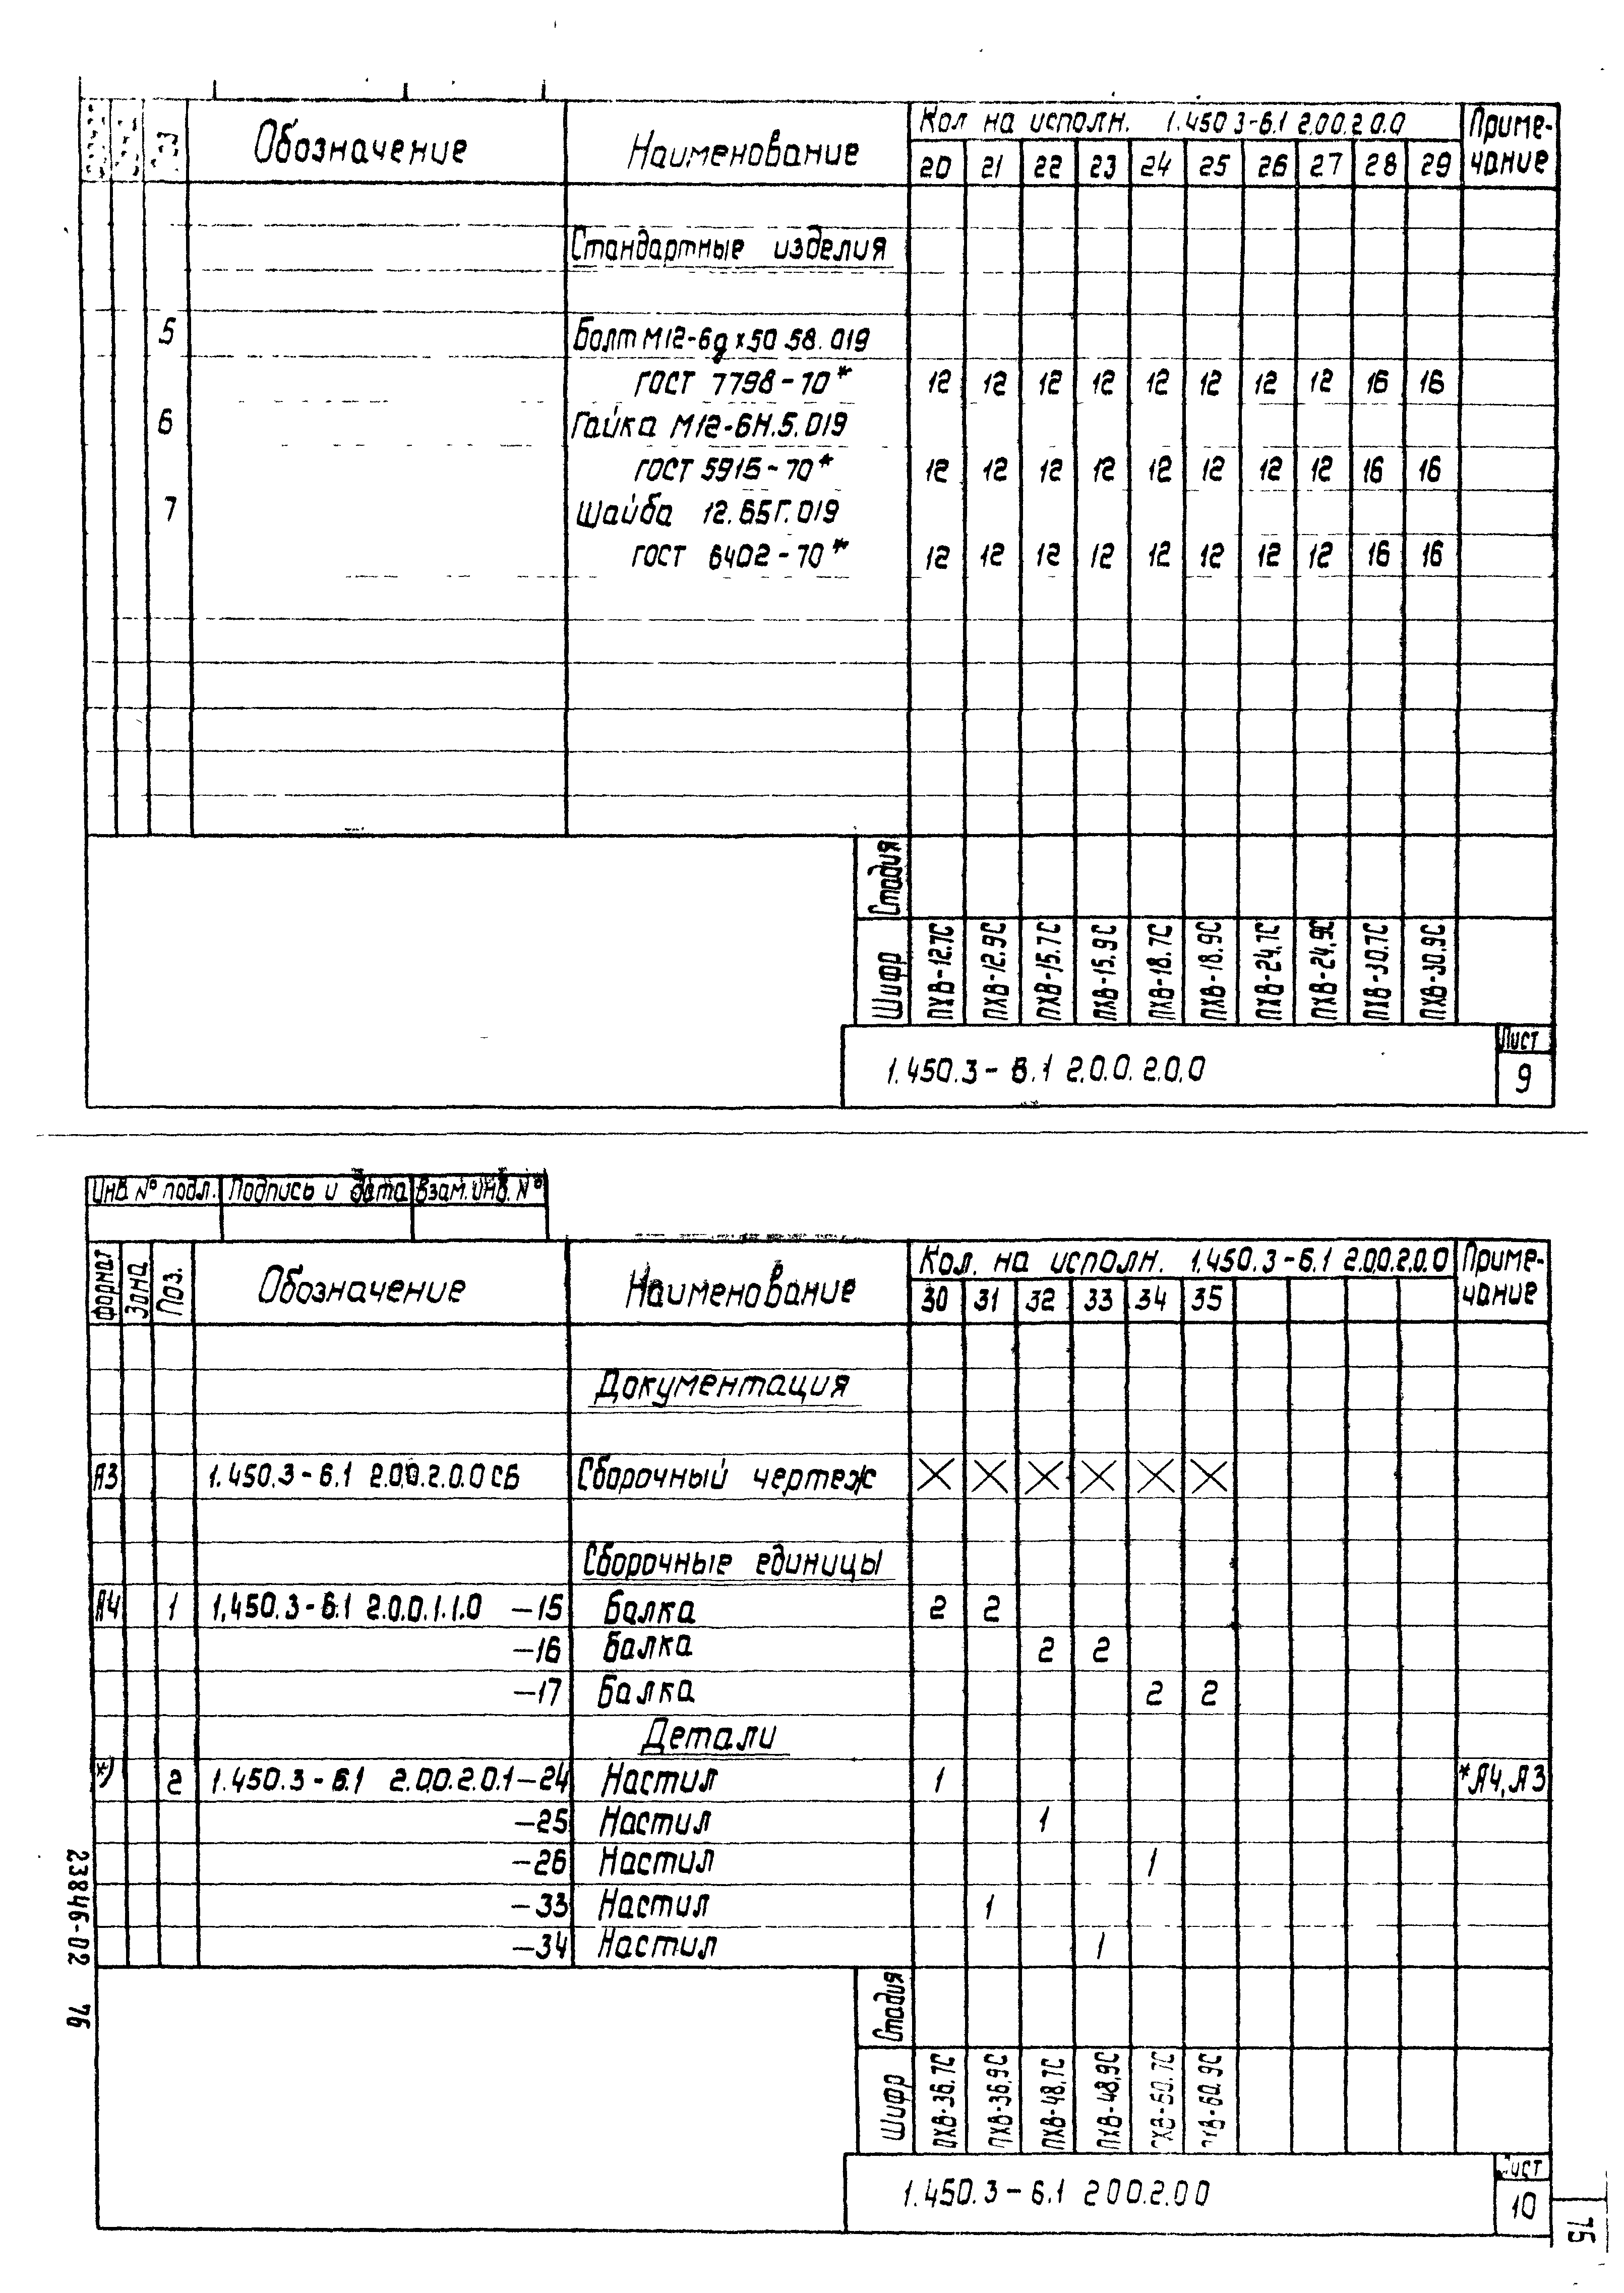 Поз Обозначение Наименование Кол на исполн. 1.450 3-6.1 2.00.2.0.0 Приме-
20 21 22 23 24 25 26 27 28 29 чание
Стандартные изделия
5 Болт М12-6gх50 58.019
ГОСТ 7798-70* 12 12 12 12 12 12 12 12 16 16
6 Гайка М12-6Н.5.019
ГОСТ 5915-70* 12 12 12 12 12 12 12 12 16 16
7 Шайба 12.65Г.019
ГОСТ 6402-70* 12 12 12 12 12 12 12 12 16 16
Стадия
Шифр ПХВ-12.7С ПХВ-12.9С ПХВ-15.7С ПХВ-15.9С ПХВ-18.7С ПХВ-18.9С ПХВ-24.7С ПХВ-24.9С ПХВ-30.7С ПХВ-30.9С
1.450.3-6.1 2.0.0.2.0.0 Лист
9
Инв. № подл. Подпись и дата Взам. инв. №
Формат Зона Поз. Обозначение Наименование Кол. на исполн. 1.450.3-6.1 2.0.0.2.0.0 Приме-
30 31 32 33 34 35 чание
Документация
А3 1.450.3-6.1 2.0.0.2.0.0 СБ Сборочный чертеж X X X X X X
Сборочные единицы
А4 1 1.450.3-6.1 2.0.0.1.1.0 -15 Балка 2 2
-16 Балка 2 2
-17 Балка 2 2
Детали
*) 2 1.450.3-6.1 2.0.0.2.0.1-24 Настил 1 *А4, А3
-25 Настил 1
-26 Настил 1
-33 Настил 1
-34 Настил 1
Стадия
Шифр ПХВ-36.7С ПХВ-36.9С ПХВ-48.7С ПХВ-48.9С ПХВ-60.7С ПХВ-60.9С
1.450.3-6.1 2 0 0.2.0 0 Лист
10
23846-02 76
75